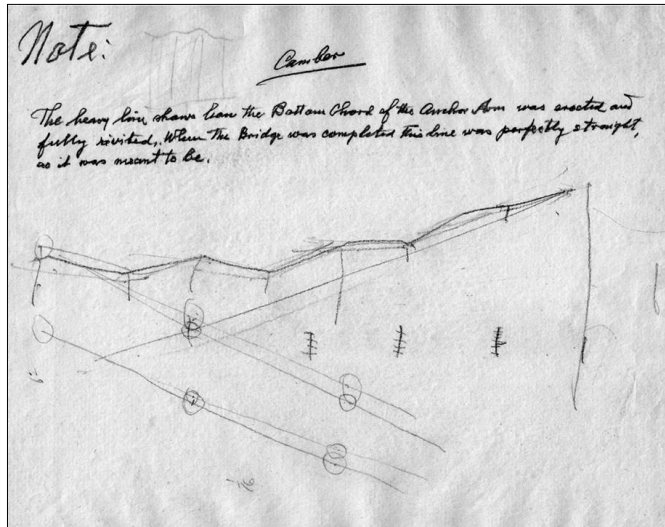 Note:
Camber
The heavy line shows how the Bottom Chord of the Anchor Arm was erected and
fully rivited,. When the Bridge was completed this line was perfectly straight,
as it was meant to be.